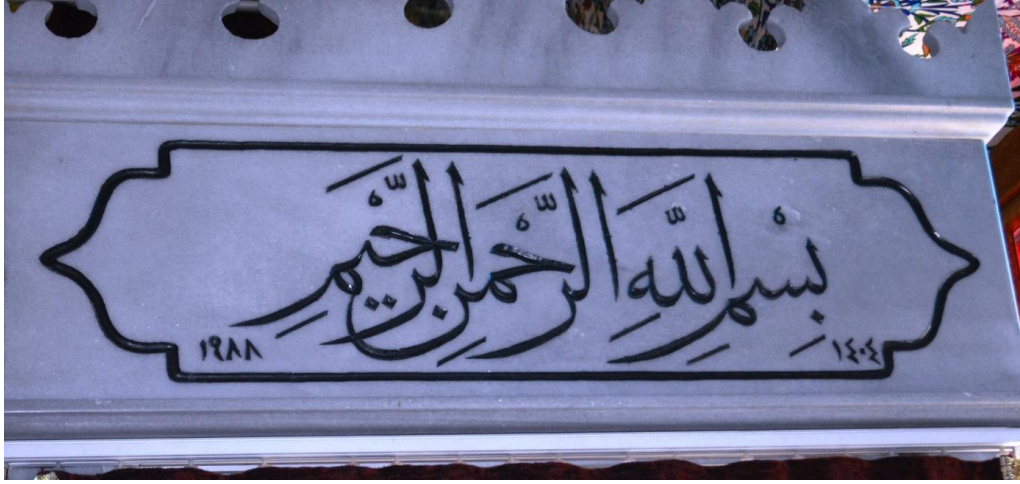 بِسْمِ اللّٰهِ الرَّحْمٰنِ الرَّحِيمِ
١٤٠٤ ١٩٨٨